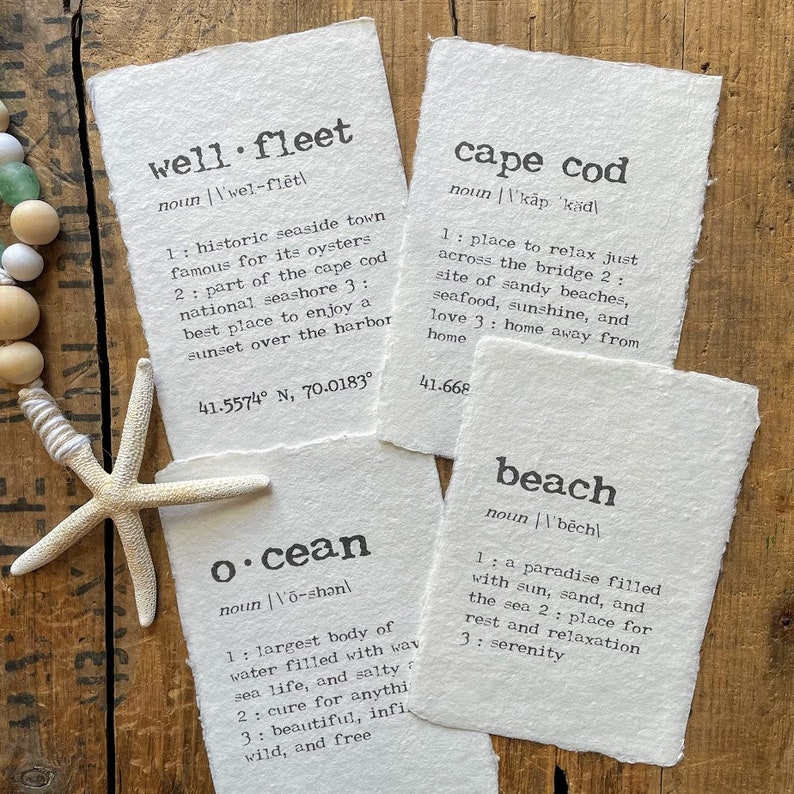 well·fleet
noun | \ˈwel-flēt\
1 : historic seaside town
famous for its oysters
2 : part of the cape cod
national seashore 3 :
best place to enjoy a
sunset over the harbor
41.5574° N, 70.0183°
cape cod
noun | \ˈkāp ˈkäd\
1 : place to relax just
across the bridge 2 :
site of sandy beaches,
seafood, sunshine, and
love 3 : home away from
home
41.668
o·cean
noun | \ˈō-shən\
1 : largest body of
water filled with
sea life, and salty
2 : cure for
3 : beautiful,
wild, and free
beach
noun | \ˈbēch\
1 : a paradise filled
with sun, sand, and
the sea 2 : place for
rest and relaxation
3 : serenity